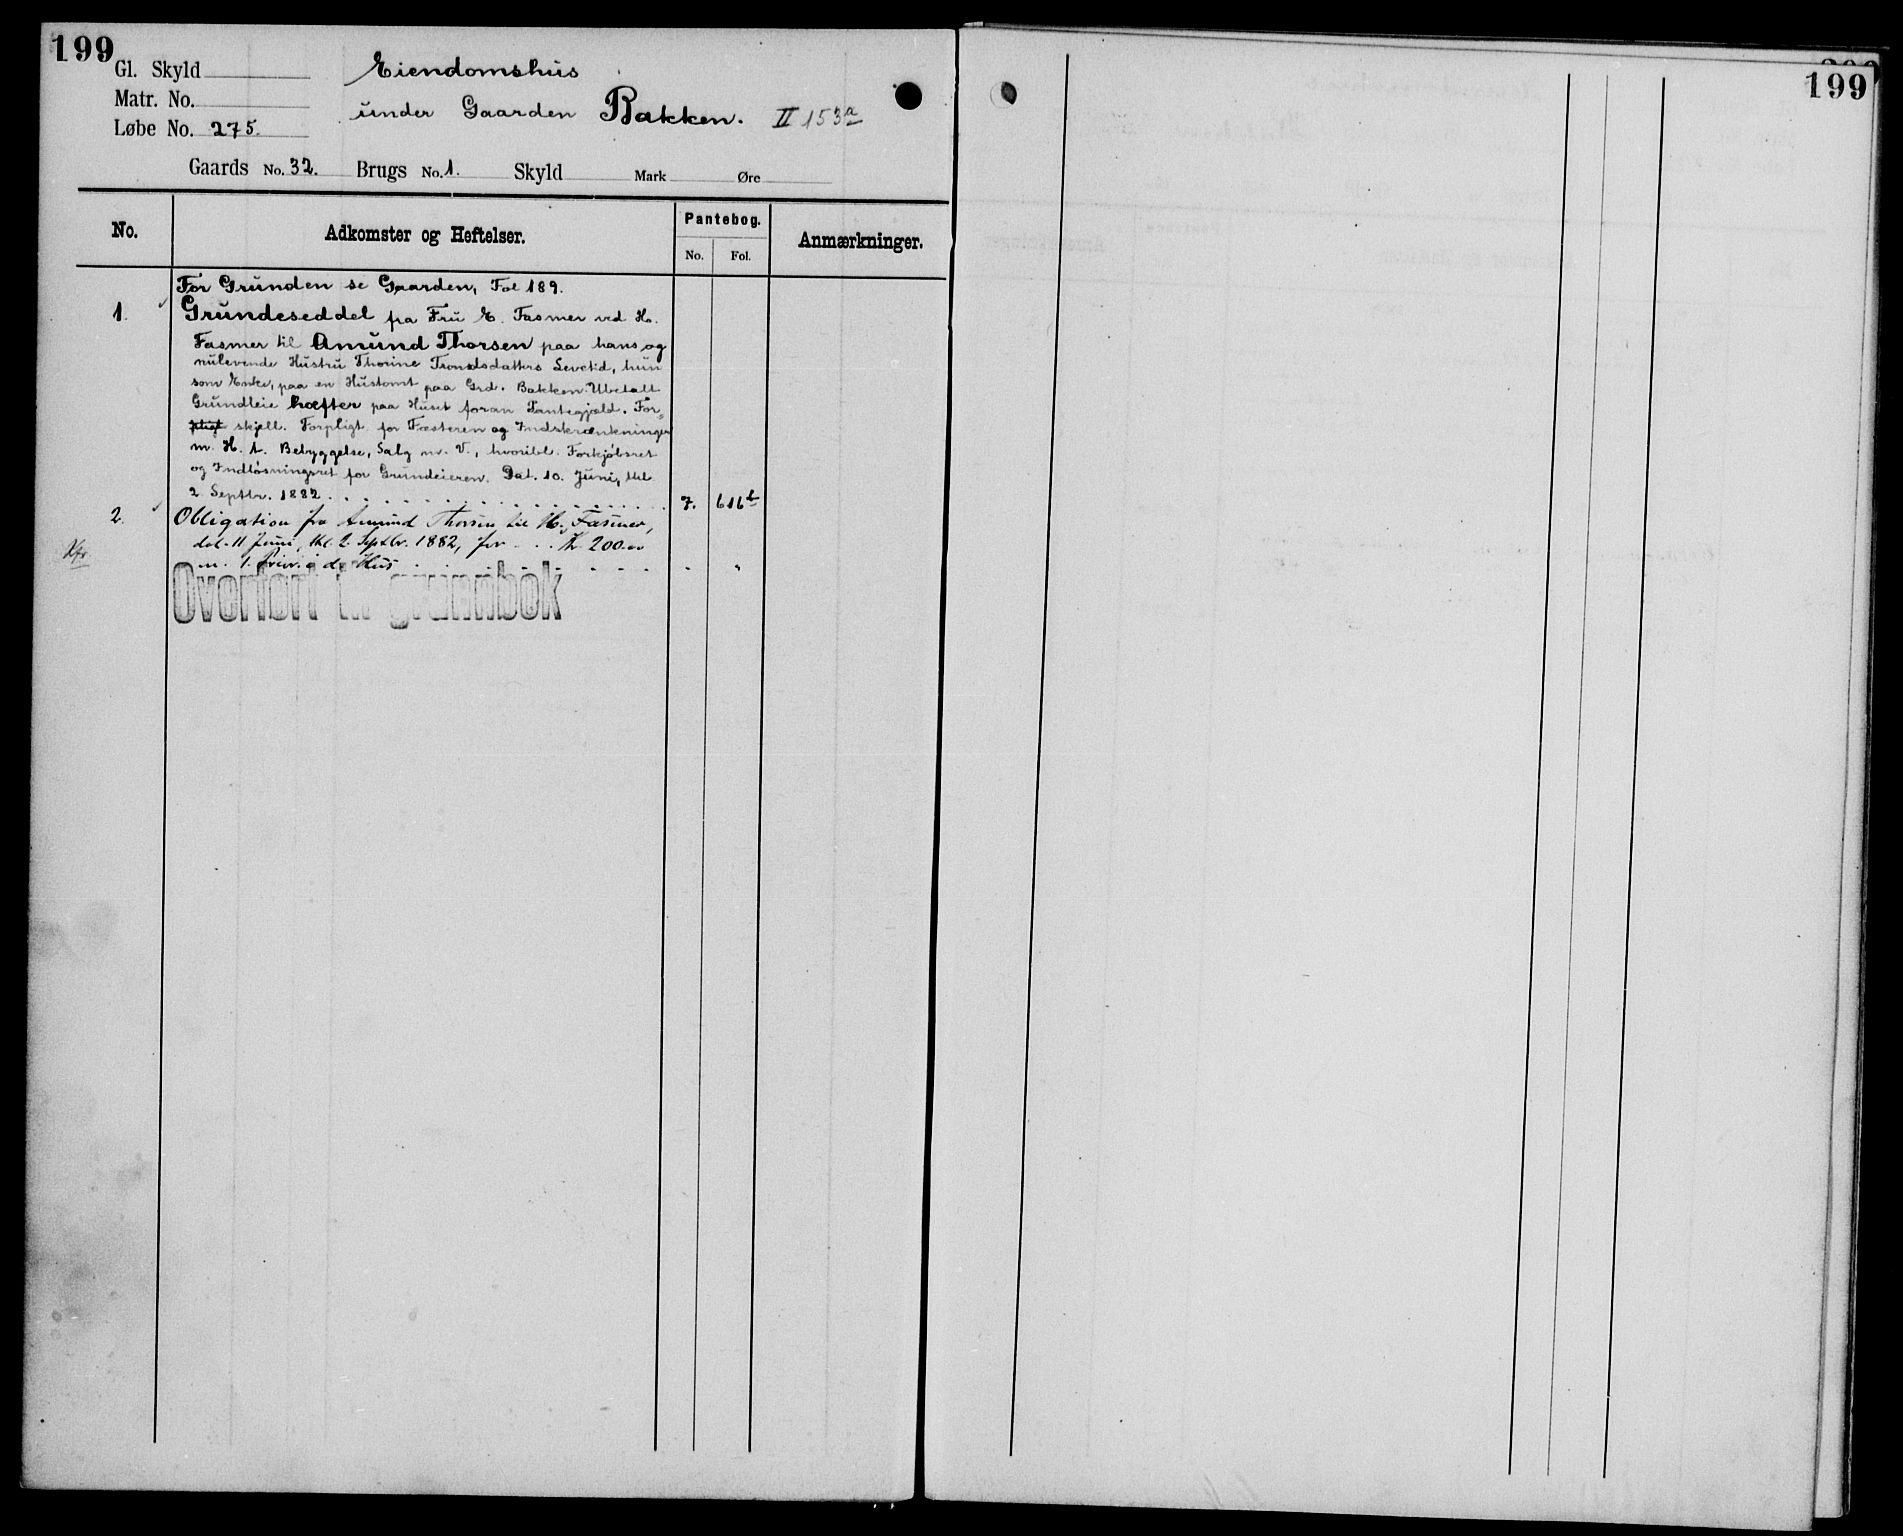 199
Gl. Skyld
Eiendomshus
Matr. No.
under Gaarden Bakken. II 153a
Løbe No. 275.
Gaards No. 32. Brugs No. 1. Skyld Mark Øre
No.
Adkomster og Heftelser.
Pantebog.
No. Fol.
Anmærkninger.
For Grunden se Gaarden, Fol 189.
1. Grundeseddel fra Fru E. Fasmer ved H.
Fasmer til Amund Thorsen paa hans og
nulevende Hustru Thorine Trondsdatters Levetid, hun
som Enke, paa en Hustomt paa Grd. Bakken. Ubetalt
Grundleie hæfter paa Huset foran Pantegjæld. For-
pligt skjell. Forpligt. for Fæsteren og Indskrænkninger
m. H. t. Bebyggelse, Salg m. V., hvoribl. Forkjøbsret
og Indløsningsret for Grundeieren. Dat. 10. Juni, thl
2 Septbr. 1882 . . . . 7. 616b
2. Obligation fra Amund Thorsen til H. Fasmer,
dat. 11 Juni, thl. 2. Septbr. 1882, for . . . Kr 200.00
m. 1. Prior. i do Hus . . . . - "
Kfr.
Overført til grunnbok
199